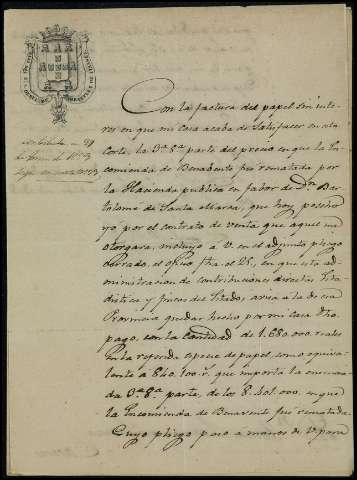 Con la factura del papel sin inte-
res en que mi casa acaba de satisfacer en esta
Corte, la 3ª 8ª parte del precio en que la En-
comienda de Benavente fué rematada por
la Hacienda publica en fabor de Dn Bar-
tolomé de Santa Maria, que hoy poseho
yo por el contrato de venta que aquel me
otorgara, incluyo a V. en el adjunto pliego
cerrado, el oficio fha el 25, en que esta ad-
ministracion de contribuciones directas Esta-
distica y fincas del Estado, avisa a la de esa
Provincia quedar hecho por mi casa dho
pago, con la cantidad de 1.680.000 reales
en la referida especie de papel, como equiva-
lente a 840.100 r. que importa la enuncia-
da 3ª 8ª parte, de los 8.401.000, en que
la Encomienda de Benavente fué rematada.
Cuyo pliego paso a manos de V. para